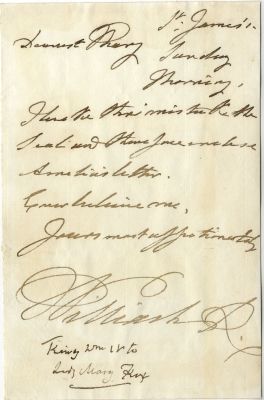 St. James's
Sunday
Morning,
Dearest Mary
I have the this mistake the
Seal and therefore enclose
Amelia's letter.
Ever believe me,
Yours most affectionately
William R.
King Wm IV to
Lady Mary Fox